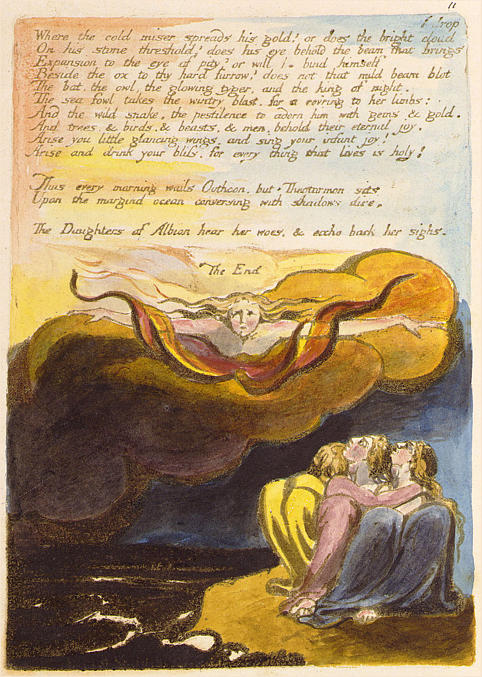 11
drop
Where the cold miser spreads his gold? or does the bright cloud
On his stone threshold? does his eye behold the beam that brings
Expansion to the eye of pity? or will he bind himself
Beside the ox to thy hard furrow? does not that mild beam blot
The bat, the owl, the glowing tyger, and the king of night.
The sea fowl takes the wintry blast. for a covring to her limbs:
And the wild snake, the pestilence to adorn him with gems & gold.
And trees. & birds. & beasts. & men. behold their eternal joy.
Arise you little glancing wings, and sing your infant joy!
Arise and drink your bliss, for every thing that lives is holy!
Thus every morning wails Oothoon. but Theotormon sits
Upon the margind ocean conversing with shadows dire,
The Daughters of Albion hear her woes, & eccho back her sighs.
The End